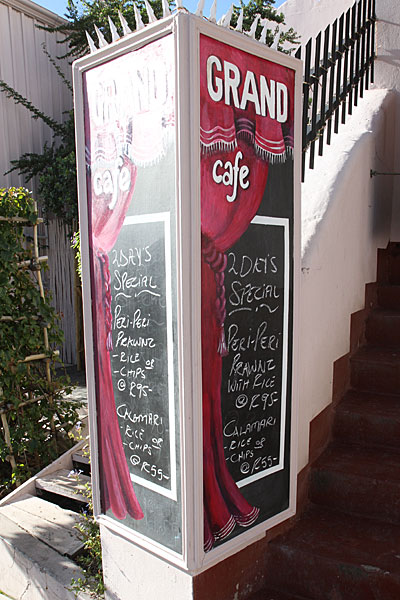 GRAND
café
2DAY'S
SPECIAL
PERI-PERI
PRAWNZ
-RICE or
-CHIPS
@R95-
CALAMARI
-RICE or
-CHIPS
@R55-
GRAND
cafe
2DAY'S
SPECIAL
PERI-PERI
PRAWNZ
WITH RICE
@R95-
CALAMARI
-RICE OR
-CHIPS
@R55-